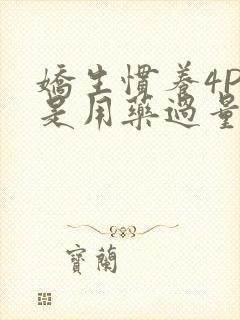 嬌生慣養4P
是用藥過量
寶蘭